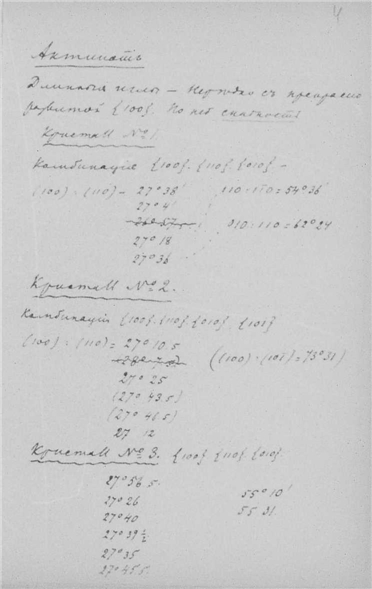 4
Актинотъ
Длинныя иглы — Нерѣдко съ прекрасно
развитой {100}. По ней спайность
Кристалл №1.
Комбинація {100}. {110}. {010}. –
(100) : (110) – 27° 38' 110 : 1̄10 = 54° 36'
27° 4'
27° 18
27° 36
010 : 110 = 62° 24
Кристалл №2.
Комбинація {100}. {110}. {010}. {101}
(100) : (110) = 27° 10.5
27° 25
((100) : (101) = 73° 31)
(27° 43.5)
(27° 46.5)
27 12
Кристалл №3. {100}. {110}. {010}.
27° 26
27° 40
27° 39 ½
27° 35
27° 45.5
55° 10'
55 31